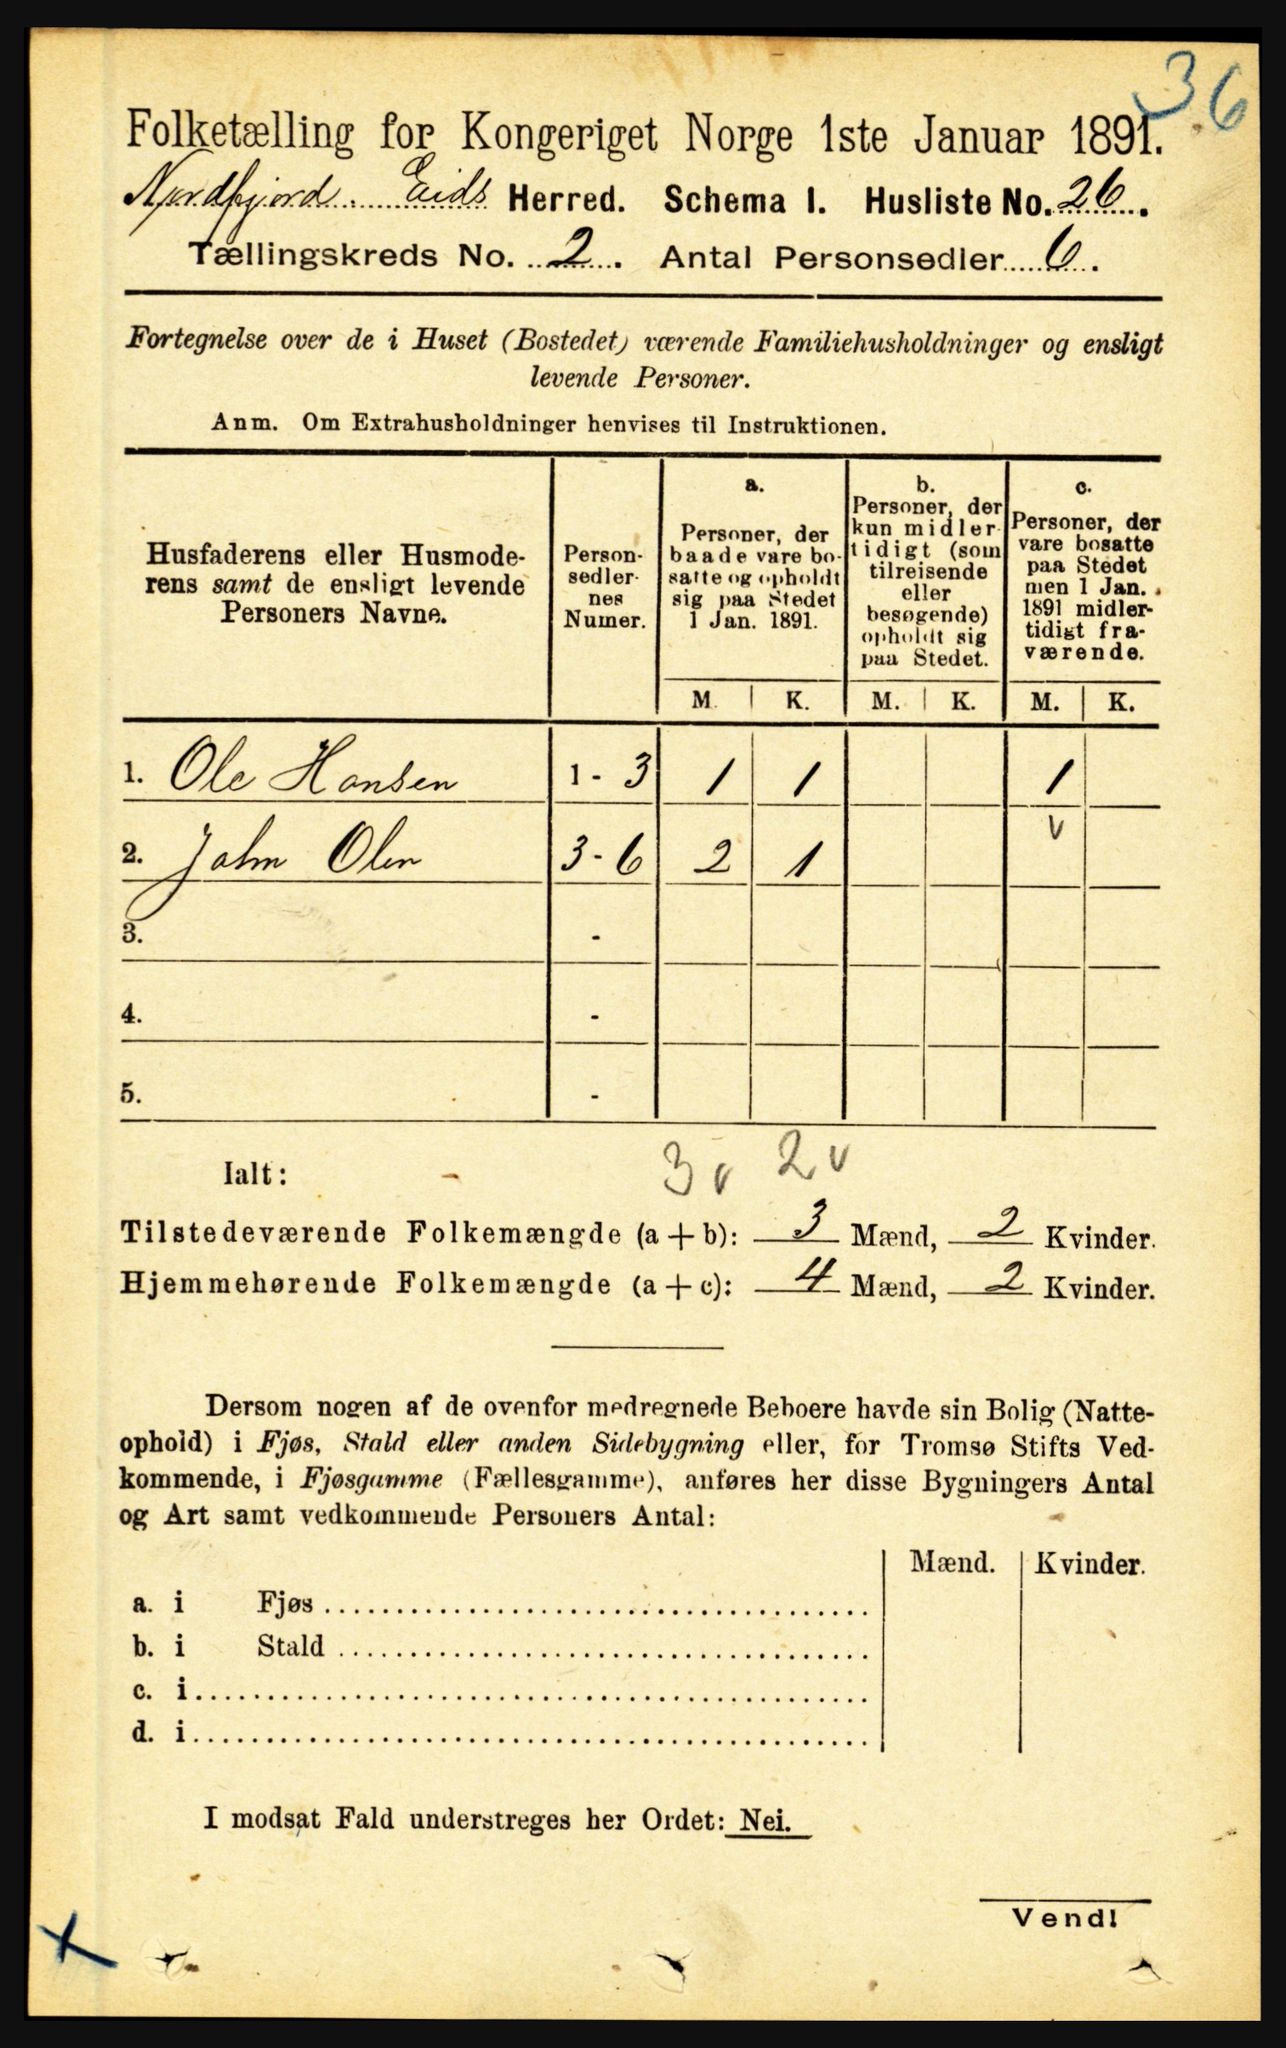 36
Folketælling for Kongeriget Norge 1ste Januar 1891.
Nordfjord. Eids Herred. Schema 1. Husliste No. 26.
Tællingskreds No. 2. Antal Personsedler 6.
Fortegnelse over de i Huset (Bostedet) værende Familiehusholdninger og ensligt
levende Personer.
Anm. Om Extrahusholdninger henvises til Instruktionen.
Husfaderens eller Husmode-
rens samt de ensligt levende
Personers Navne.
Person-
sedler-
nes
Numer.
a.
Personer, der
baade vare bo-
satte og opholdt
sig paa Stedet
1 Jan. 1891.
b.
Personer, der
kun midler-
tidigt (som
tilreisende
eller
besøgende)
opholdt sig
paa Stedet.
c.
Personer, der
vare bosatte
paa Stedet
men 1 Jan.
1891 midler-
tidigt fra-
værende.
M. K. M. K. M. K.
1. Ole Hansen 1 - 3 1 1 1
v
2. John Olsn 3 - 6 2 1
3. -
4. -
5. -
3 v 2 v
Ialt:
Tilstedeværende Folkemængde (a + b): 3 Mænd, 2 Kvinder.
Hjemmehørende Folkemængde (a + c): 4 Mænd, 2 Kvinder.
Dersom nogen af de ovenfor medregnede Beboere havde sin Bolig (Natte-
ophold) i Fjøs, Stald eller anden Sidebygning eller, for Tromsø Stifts Ved-
kommende, i Fjøsgamme (Fællesgamme), anføres her disse Bygningers Antal
og Art samt vedkommende Personers Antal:
Mænd. Kvinder.
a. i Fjøs
b. i Stald
c. i
d. i
I modsat Fald understreges her Ordet: Nei.
Vend!